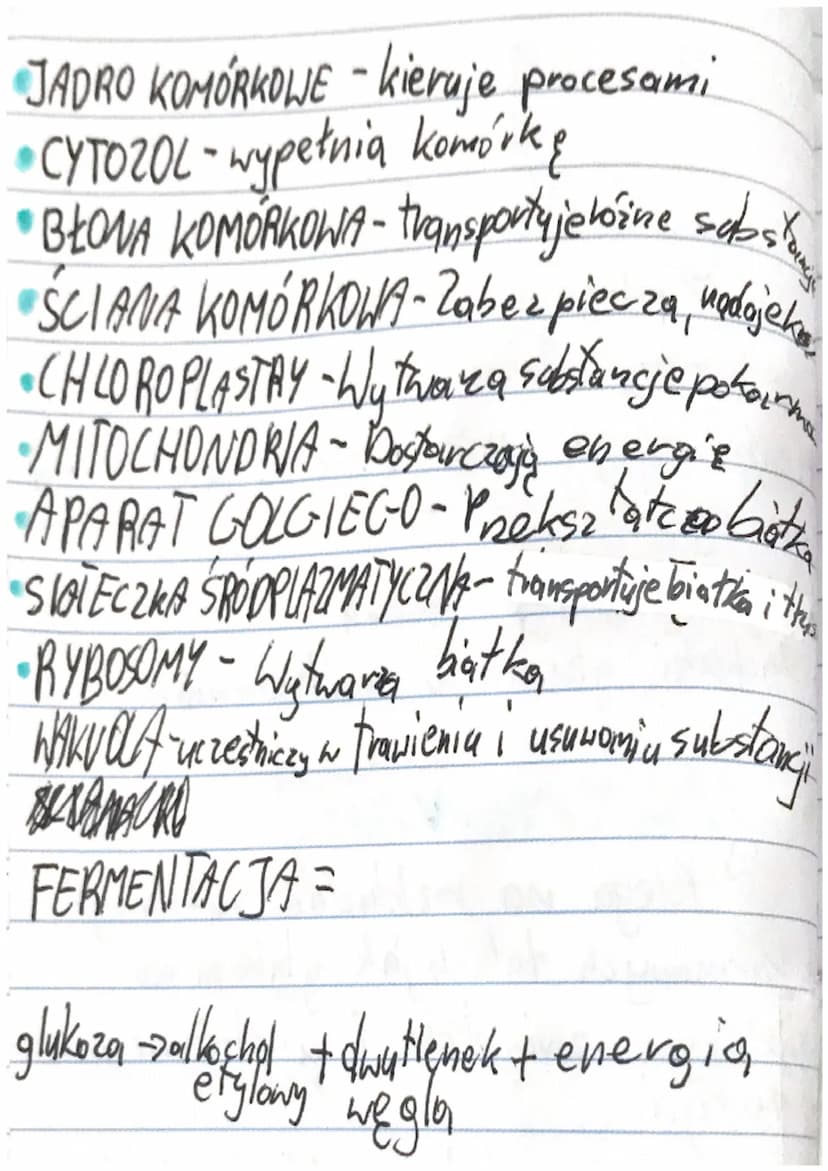 •JADRO KOMÓRKOWE - kieruje procesami
•CYTOZOL - wypełnia komórkę
•BŁONA KOMÓRKOWA - transportyje różne substancje
•ŚCIANA KOMÓRKOWA - Zabezpiecza,
•CHLOROPLASTRY - Wytwarza substancje pokarmo
•MITOCHONDRIA - Dostarczają energię
•APARAT GOLGIEGO - Przekształca białka
•SIATECZKA ŚRÓDPLAZMATYCZNA - transportuje białka i
•RYBOSOMY - Wytwarza białka
WAKUOLA - uczestniczy w trawieniu i usuwaniu substancji
FERMENTACJA =
glukoza → alkochol + dwutlenek + energia
etylowy węgla